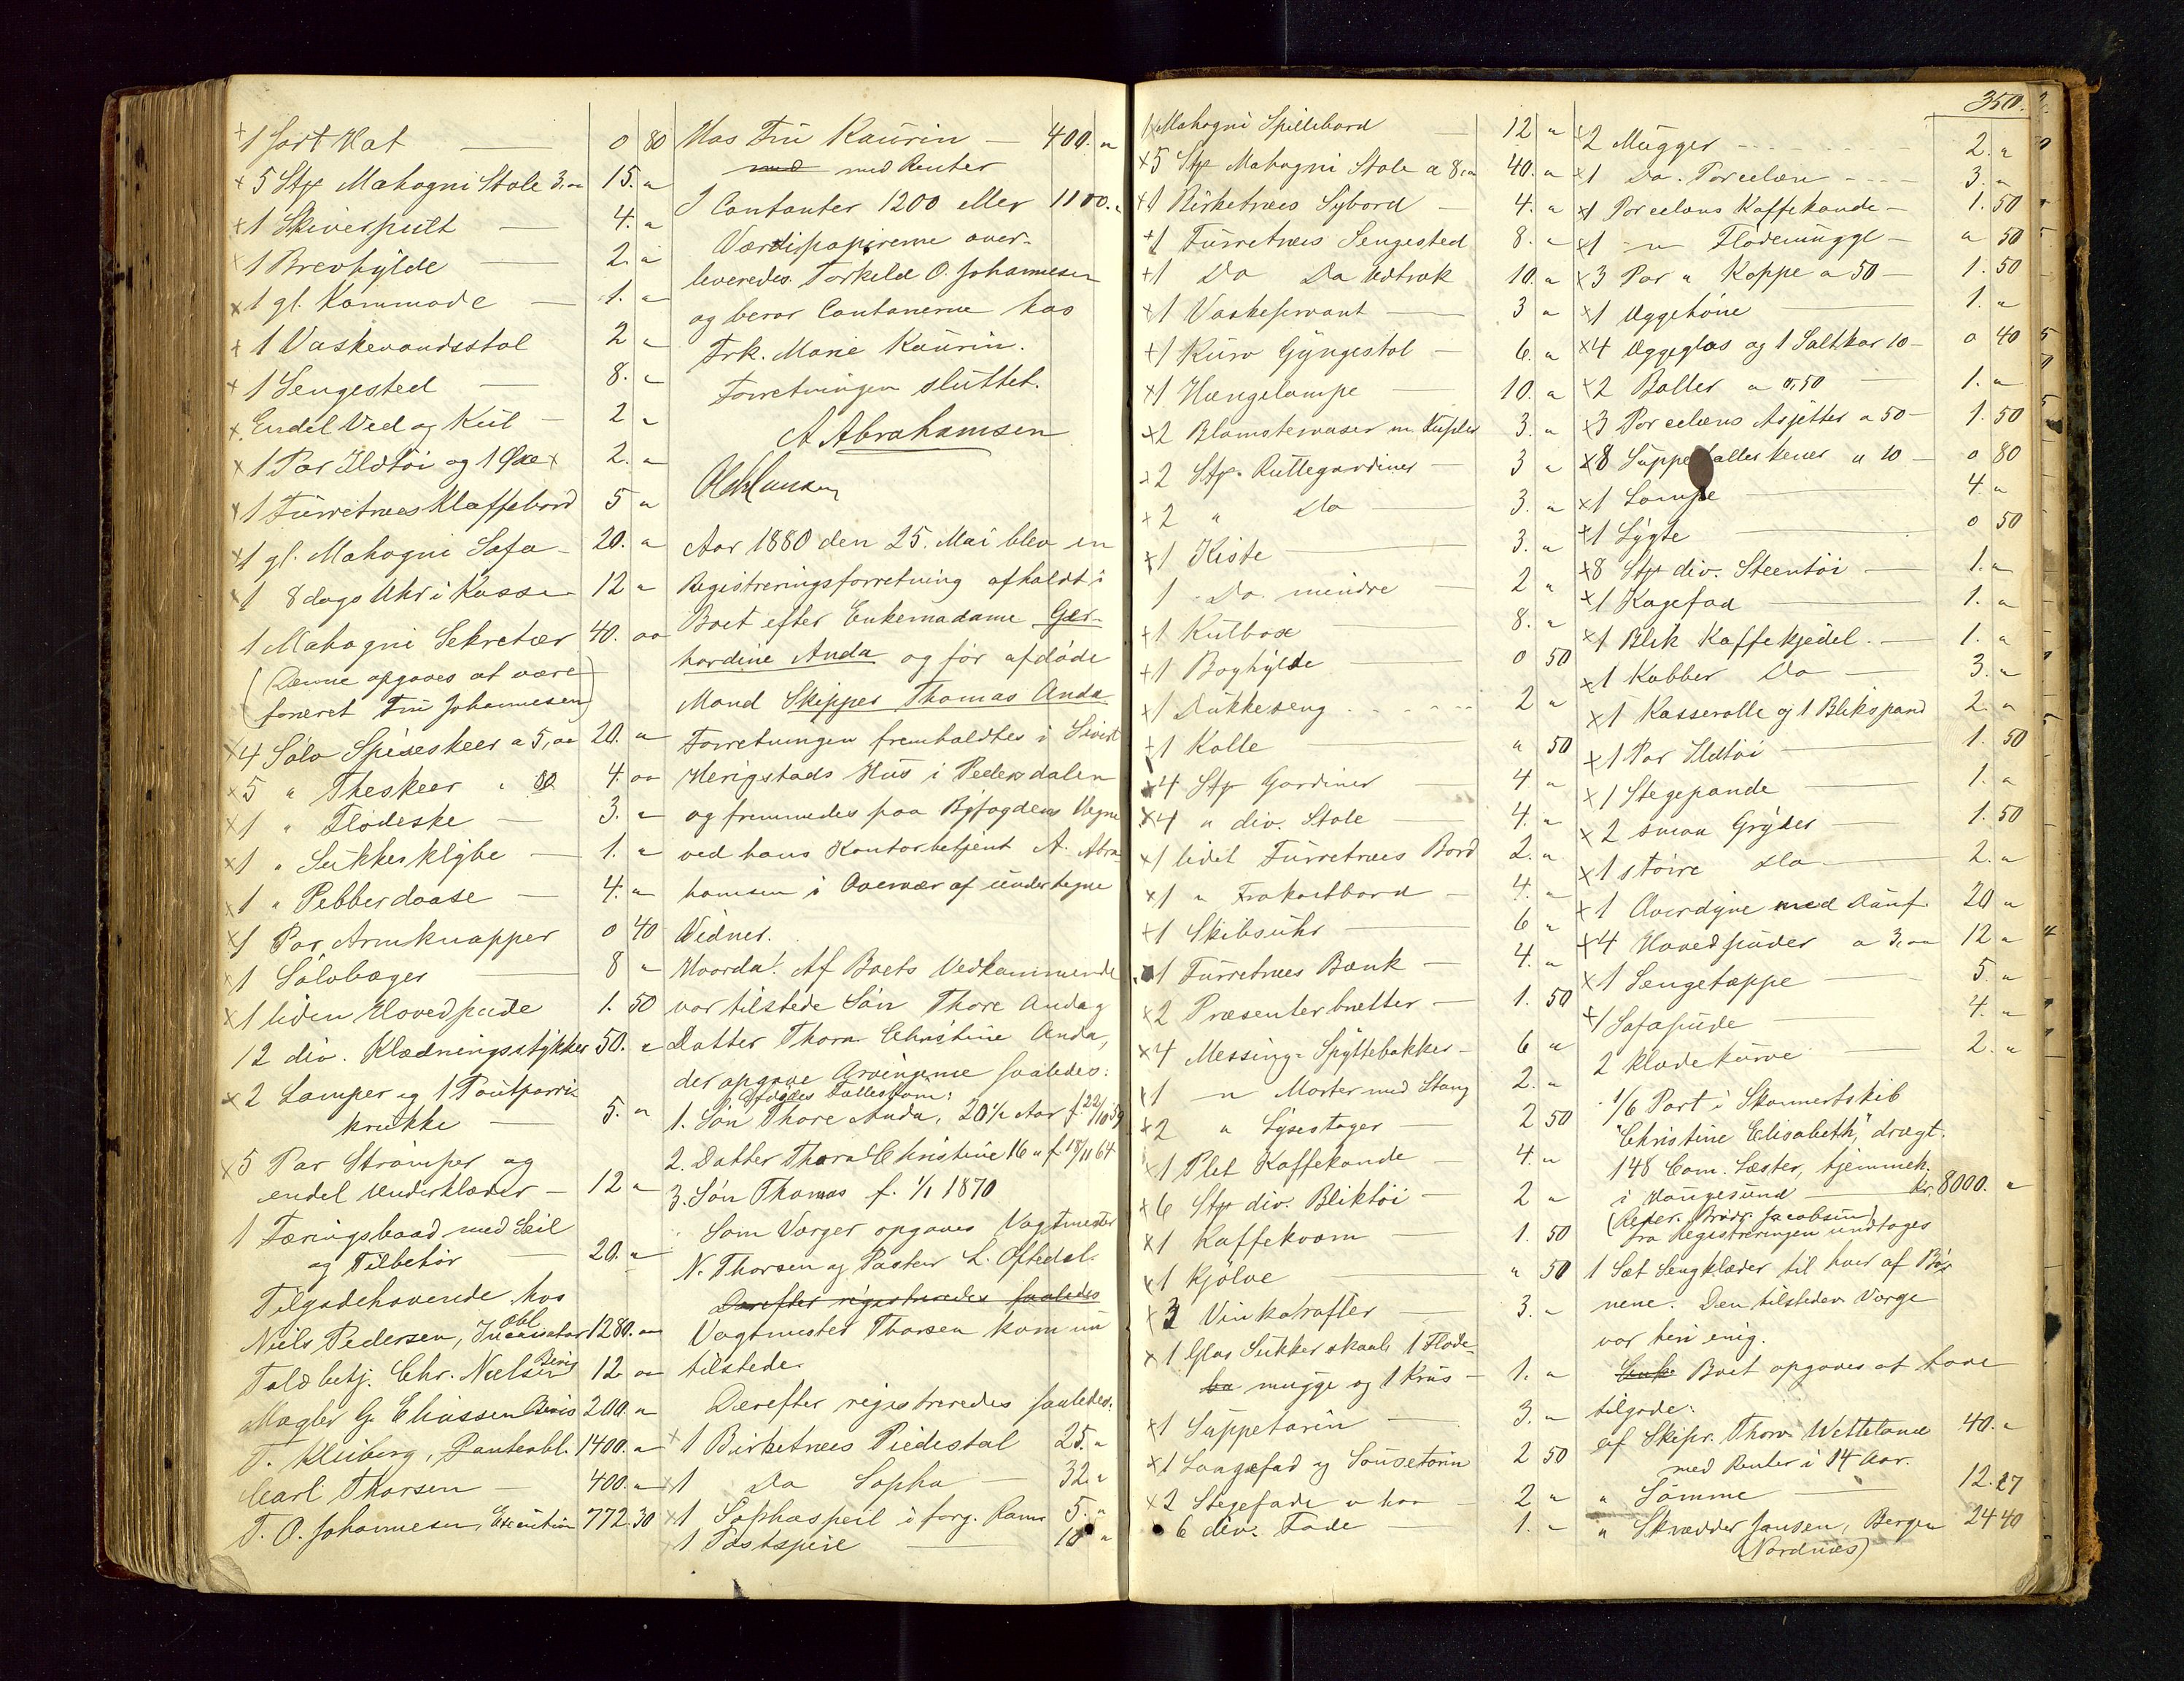 + 1 sort Hat — 0 80
+ 5 Stp Mahogni Stole 3,,„ 15. „
× 1 Skriverpult — 4. „
× 1 Brevhylde — 2. „
× 1 gl. Kommode — 1. „
+ 1 Vaskevandsstol 2 „
+ 1 Sengested — 8. „
×. Endel Ved og Kul — 2 „
× 1 Par Ildtöi og 1 Øxe × 2. „
× 1 Furretræes Klaffebord 5 „
× 1 gl. Mahogni Sofa — 20. „
× 1 8 dags Uhr i Kasse 12 „
1 Mahogni Sekretær 40. oo
(Denne opgaves at være
foræret Fru Johannesen)
× 4 Sölv Spiseskeer a 5,oo 20. „
× 5 „ Theskeer „ 80 4. oo
× 1 „ Flödeske — 3. „
× 1 „ Sukkerklybe — 1. „
× 1 „ Pebberdaase — 4. „
× 1 Par Armknapper 0 40
× 1 Sölvbæger — 8 „
× 1 liden Hovedpude 1. 50
12 div. Klædningsstykker 50. „
× 2 Lamper og 1
krukke — 5. „
× 5 Par Strömper og
endel Underklæder — 12 „
1 Færingsbaad med Seil
og Tilbehör — 20. „
Tilgodehavende hos
Niels Pedersen, obl. 1280. „
Toldbetj. Chr. Nielsen Bevis 12 oo
Mægler G. Eliassen Bevis 200. „
T. Kleiberg, Panteobl. 1400. „
Carl Thorsen — 400. „
T. O. Johannesen, Execution 772. 30
Hos Fru Kaurin — 400. „
med med Renter
I Contanter 1200 eller 1100. „
Værdipapirerne over-
leveredes Torkild O. Johannesen
og beror Contanerne hos
Frk. Marie Kaurin.
Forretningen sluttet.
A Abrahamsen
Aar 1880 den 25. Mai blev en
Registreringsforretning afholdt i
Boet efter Enkemadame Ger-
hardine Anda og för afdöde
Mand Skipper Thomas Anda
Forretningen fremholdtes i Sivert
Herigstads Hus i Pedersdalen
og fremmedes paa Byfogdens Vegne
ved hans Kontorbetjent A. Abra-
hamsen i Overvær af undertegne
Vidner.
Hvorda: Af Boets Vedkommende
var tilstede Sön Thore Anda og
Datter Thora Christine Anda,
der opgave Arvingerne saaledes:
Afdödes Fællesbørn:
1. Sön Thore Anda, 20½ Aar f. 22/10 59
2. Datter Thora Christine 16 „ f. 18/11 64
3. Sön Thomas f. 1/1 1870
Som Værger opgaves Vagtmester
N. Thorsen og Pastor L. Oftedal.
Derefter registreredes saaledes
Vagtmester Thorsen kom nu
tilstede.
Derefter registreredes saaledes:
× 1 Birketræes Piedestal 25. „
× 1 Do Sopha — 32. „
× 1 Sophaspeil i forg. Ramme 5. „
1 Tastspeil — 10 „
350.
1× Mahogni Spillebord — 12 „
× 5 Stp Mahogni Stole a 8,„ 40. „
×1 Birketræes Sybord — 4. „
+1 Furretræes Sengested 8. „
+1 Do Do Udtræk 10. „
×1 Vaskeservant — 3 „
+1 Kurv Gyngestol — 6. „
×1 Hængelampe — 10. „
×2 Blomstervaser m Kupler 3. „
×2 Stp. Rullegardiner — 3 „
+2 „ Do — 3. „
×1 Kiste — 3. „
1 Do mindre — 2 „
+1 Kulbox — 8. „
+1 Boghylde — 0 50
×1 Dukkeseng — 2 „
+1 Kolle — „ 50
×4 Stp Gardiner — 4 „
×4 „ div. Stole — 4. „
×1 lidet Furretræes Bord 2. „
×1 „ Frokostbord — 4. „
+1 Skibsuhr — 6 „
×1 Furretræes Bænk — 4. „
×2 Præsenterbretter — 1. 50
×4 Messing-Spyttebakker — 6 „
×1 —„— Morter med Stang 2. „
×2 „ Lysestager — 2 50
×1 Plet Kaffekande — 4. „
×6 Stp div. Bliktöi — 2 „
×1 Kaffekværn — 1. 50
×1 Kjölve — „ 50
×3 Vinkarafler — 3. „
×1 Glas Sukkerskaal 1 Flöde-
mugge og 1 Krus — 1. „
×1 Suppetørin — 3. „
×1 Langefad og Sousetørin 2 50
×2 Stegefade — 2 „
6 div. Fade — 1. „
×2 Mugger — 2. „
×1 Do. Porcelæn — 3. „
×1 Porcelæns Kaffekande — 1. 50
×1 —„— Flödemugge — „ 50
×3 Par „ Koppe a 50 — 1. 50
×1 Æggehöne — 1. „
×4 Æggeglas og 1 Saltkar 10 — 0 40
×2 Boller a 0,50 — 1. „
×3 Porcelæns Asjetter a 50 — 1. 50
×8 Suppetallerkener a 10 — 0 80
×1 Lampe — 4. „
×1 Lygte — 0 50
×8 Stp div. Steentöi — 1. „
×1 Kagefad — 1. „
×1 Blik Kaffekjedel. — 1. „
×1 Kobber Do — 3. „
×1 Kasserolle og 1 Blikspand 2. „
×1 Par Ildtöi — 1. 50
×1 Stegepande — 1. „
×2 smaa Gryder — 1. 50
×1 större Do — 2. „
×1 Overdyne med Dunf. 20 „
×4 Hovedpuder a 3,oo 12 „
×1 Sengetæppe — 5. „
+1 Sofapude — 4. „
2 Klædekurve — 2. „
1/6 Part i Skonnertskib
"Christine Elisabeth," drægt.
148 Com. Læster, hjemmeh.
i Haugesund — Kr. 8000. „
(Reder. Brödr. Jacobsen)
fra Registreringen undtages
1 Sæt Sengklæder til hver af Bör-
nene. Den tilstedev. Værge
var heri enig.
Boet opgaves at have
tilgode:
af Skipr. Thorv. Wetteland 40. „
med Renter i 14 Aar.
„ Sömme — 12. 27
„ Skrædder Jansen, Bergen 24 40
(Nordnæs)